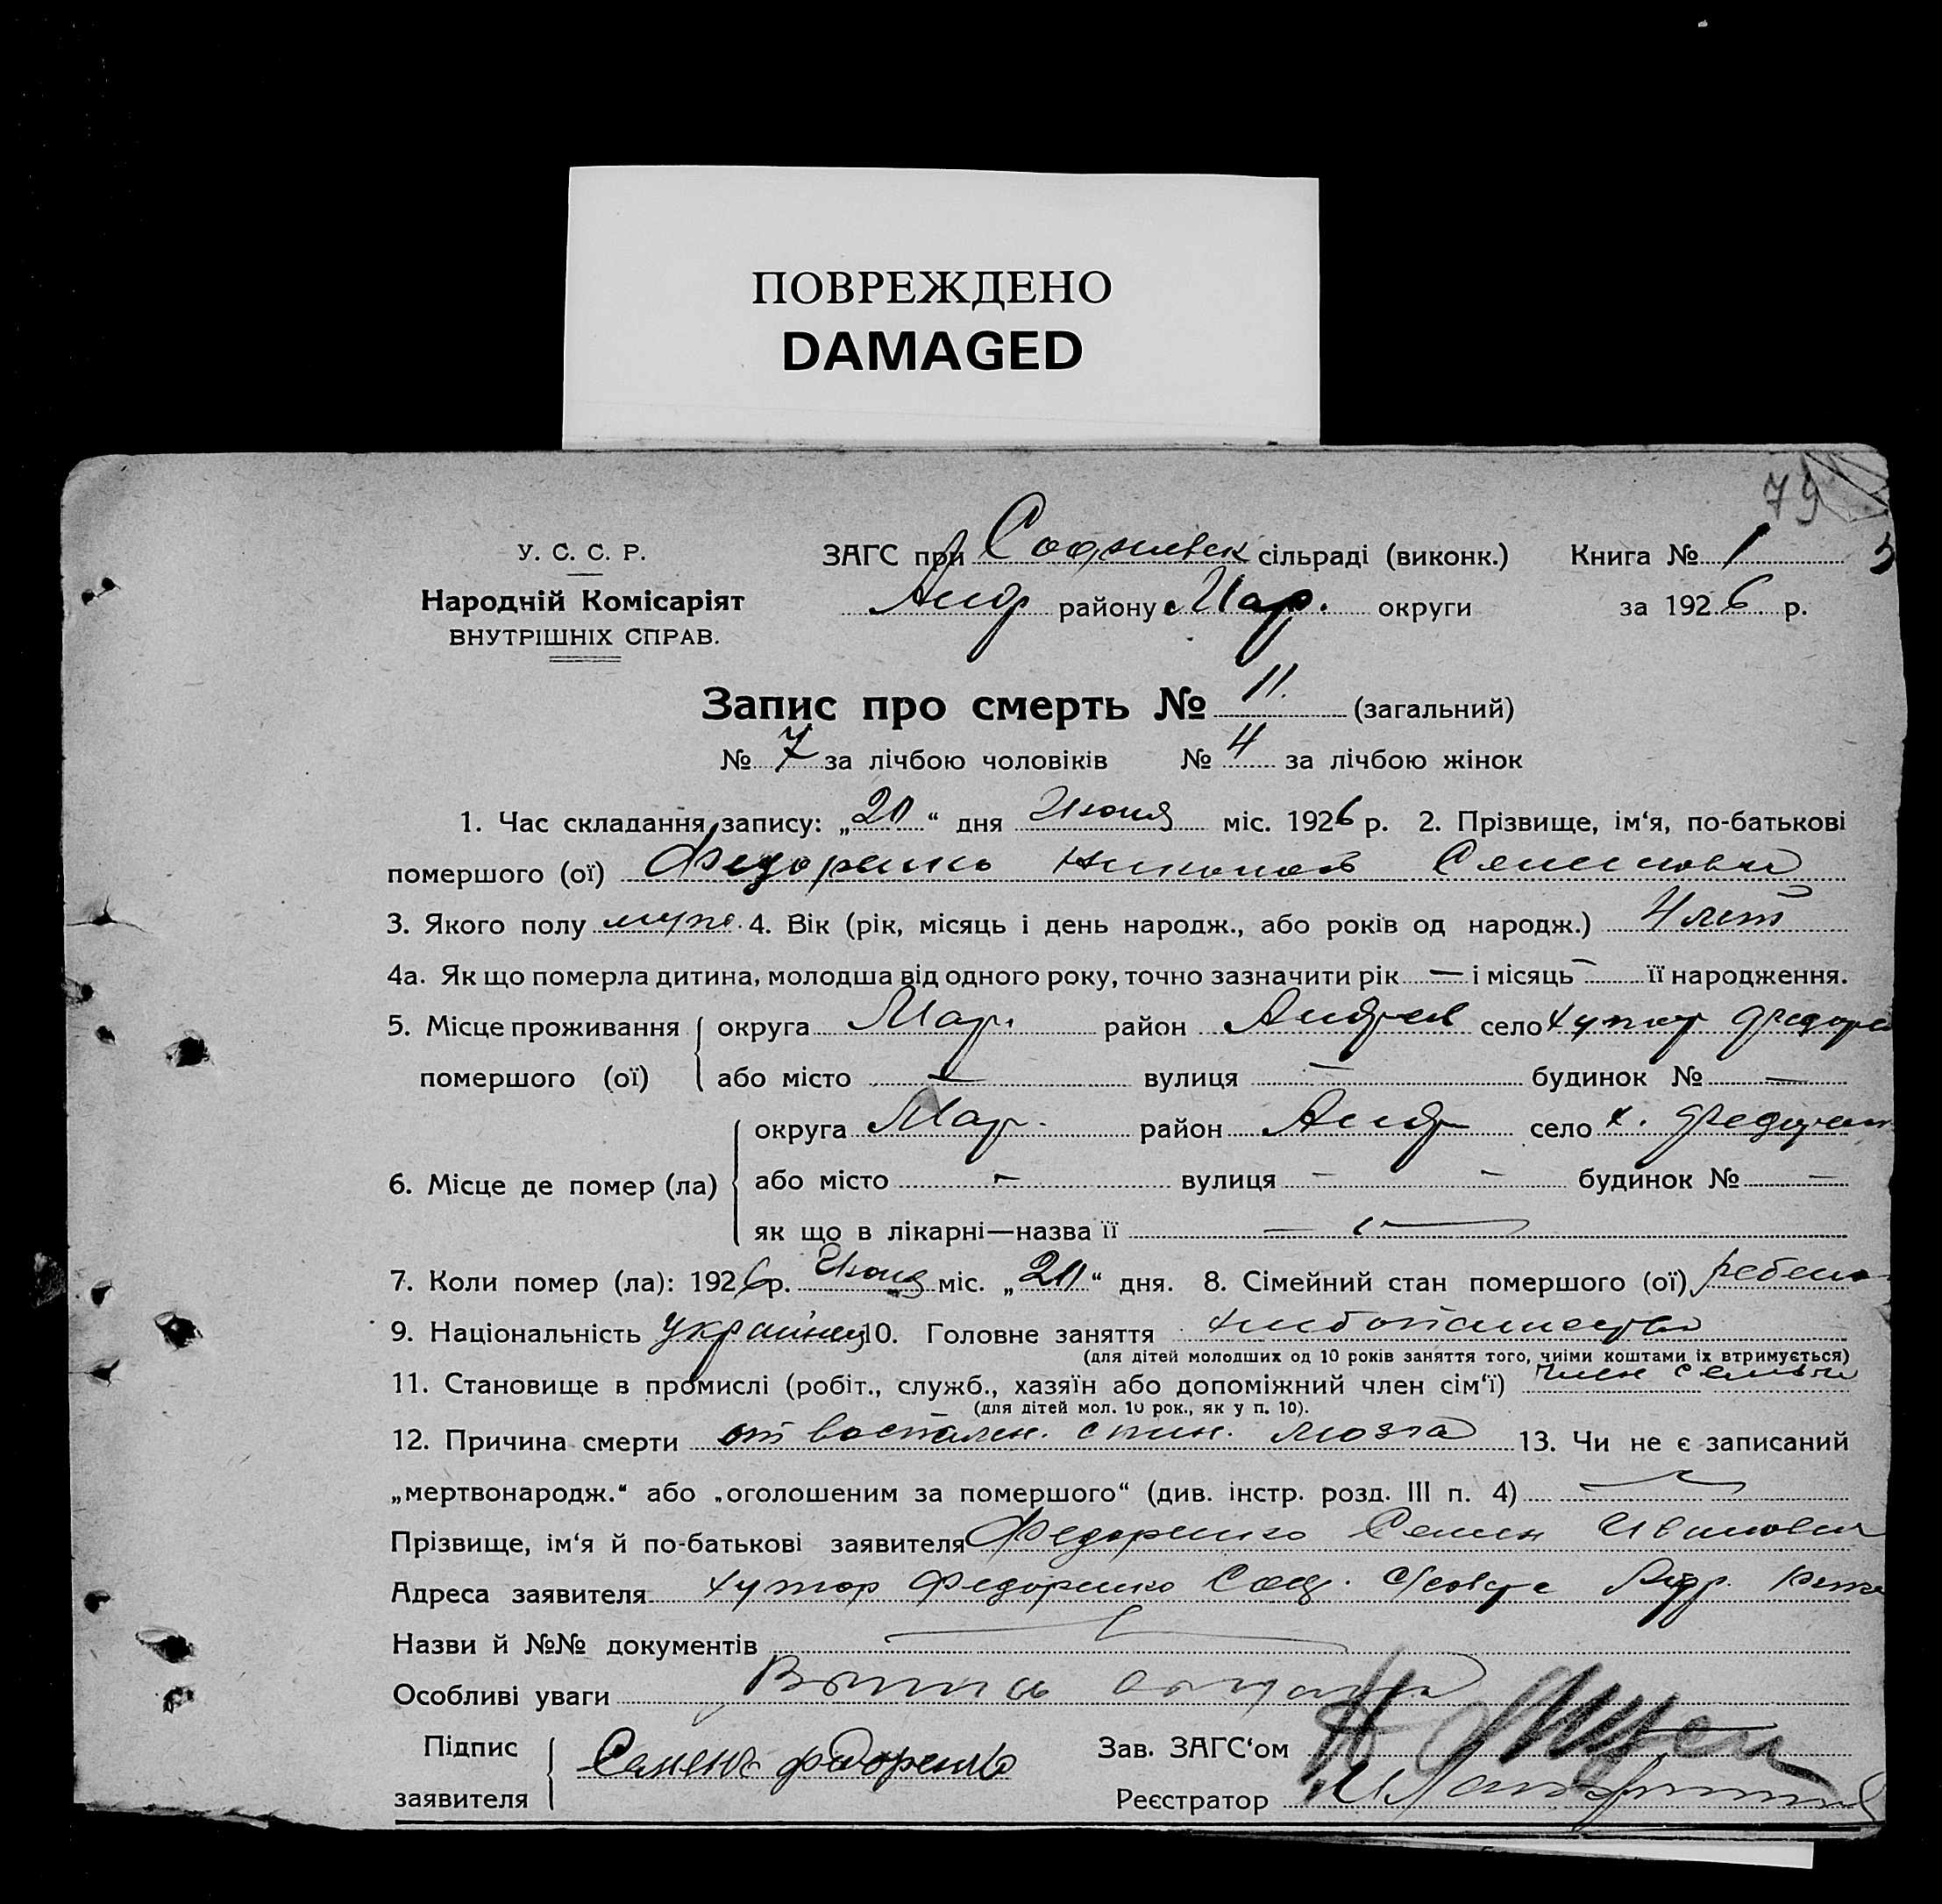 ПОВРЕЖДЕНО
DAMAGED
79
У. С. С. Р.
Народній Комісаріят
ВНУТРІШНІХ СПРАВ.
ЗАГС при сільраді (виконк.) Книга № 1
району Мар. округи за 1926 р.
Запис про смерть № 11. (загальний)
№ 7 за лічбою чоловіків № 4 за лічбою жінок
1. Час складання запису: „20“ дня Июня міс. 1926 р. 2. Прізвище, ім‘я, по-батькові
помершого (ої) Федоренко Николай Семенович
3. Якого полу муж. 4. Вік (рік, місяць і день народж., або років од народж.) 4 лет
4а. Як що померла дитина, молодша від одного року, точно зазначити рік — і місяць — її народження.
5. Місце проживання округа Мар. район Андреев село хутор Федоре
помершого (ої) або місто — вулиця — будинок № —
округа Мар. район Андр село х. Федорен
6. Місце де помер (ла) або місто — вулиця — — будинок № —
як що в лікарні—назва її —
7. Коли помер (ла): 1926 р. Июня міс. „20“ дня. 8. Сімейний стан помершого (ої) ребено
9. Національність украинец 10. Головне заняття хлебопашество
(для дітей молодших од 10 років заняття того, чиїми коштами їх втримується)
11. Становище в промислі (робіт., служб., хазяїн або допоміжний член сім‘ї) член семьи
(для дітей мол. 10 рок., як у п. 10).
12. Причина смерти от воспален. спин. мозга 13. Чи не є записаний
„мертвонародж.“ або „оголошеним за помершого“ (див. інстр. розд. III п. 4) —
Прізвище, ім‘я й по-батькові заявителя Федоренко Семен Иванович
Адреса заявителя хутор Федоренко Соф. Андр.
Назви й №№ документів —
Особливі уваги
Підпис Семен Федоренко Зав. ЗАГС‘ом
заявителя Реєстратор